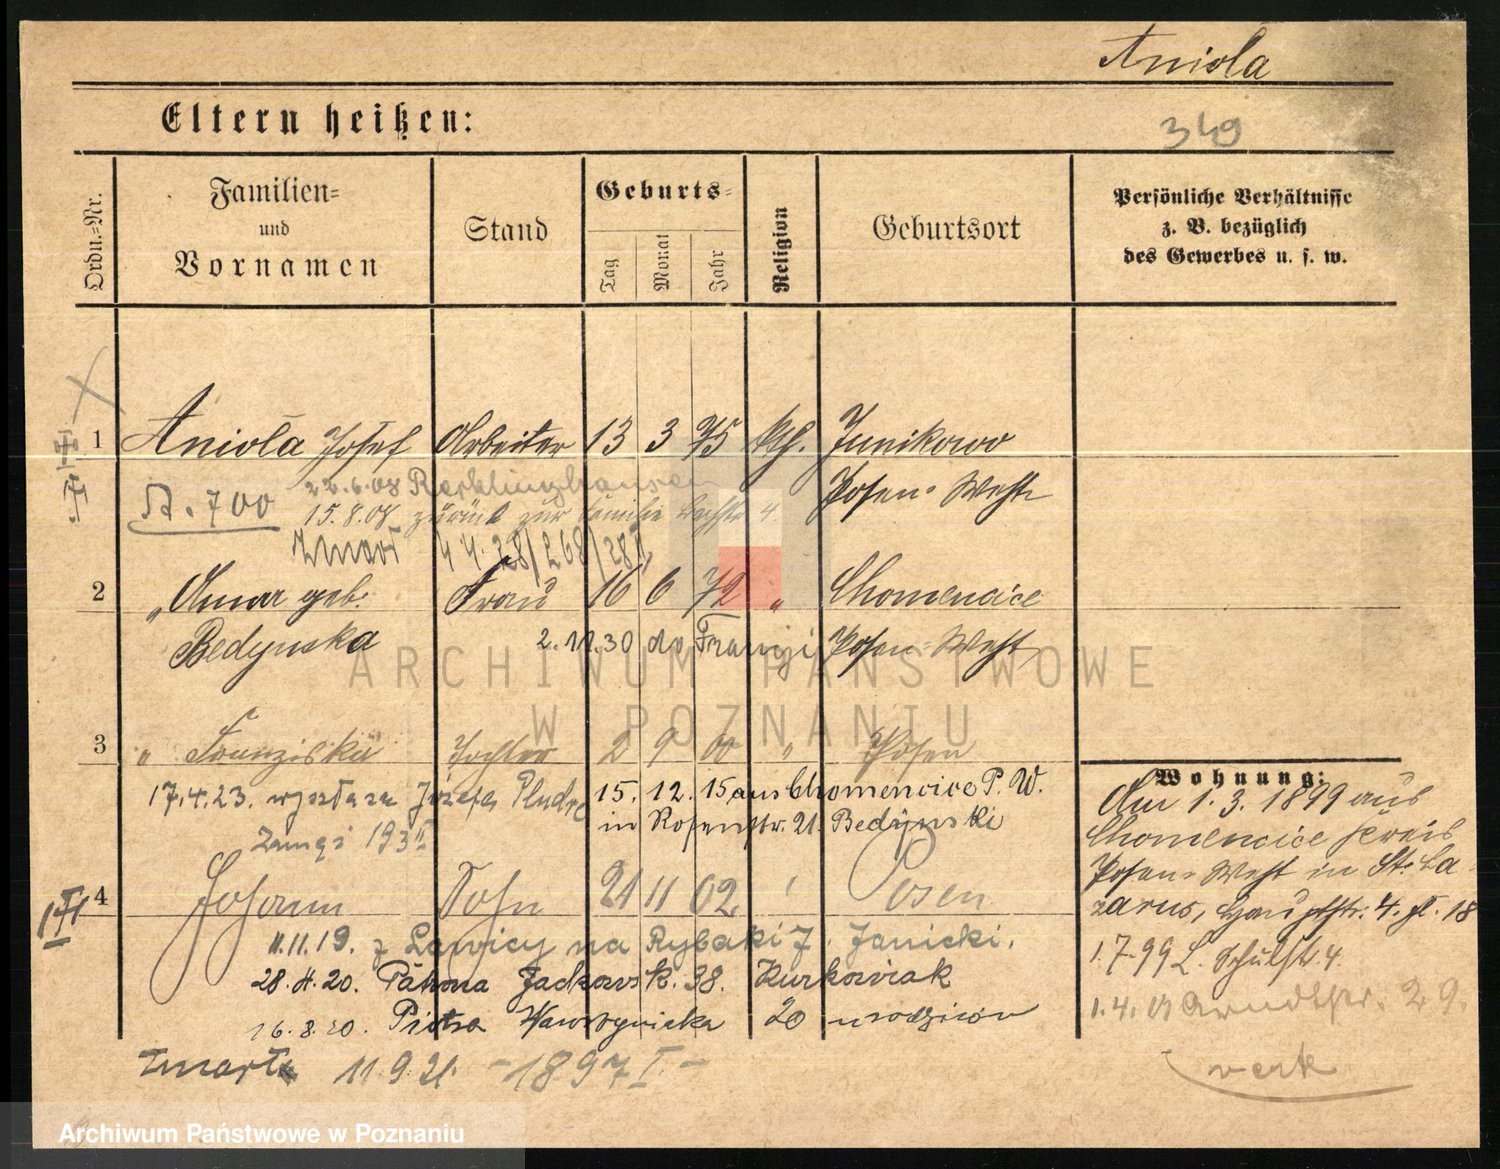 Aniola
349
Eltern heißen:
Ordn.=Nr.
Familien=
und
Vornamen
Stand
Geburts=
Tag
Monat
Jahr
Religion
Geburtsort
Persönliche Verhältnisse
z. B. bezüglich
des Gewerbes u. s. w.
1 Aniola Josef Arbeiter 13 3 75 kth. Junikowo
22.6.08 Recklinghausen Posen-West
700 15.8.08 zurück zur Familie
zmarł
2 " Anna geb. Frau 16 6 72 " Chomencice
Bedynska 2.11.30 do Francji Posen-West
3 " Franziska Tochter 2 9 00 " Posen
17.4.23. wyszła za Józefa 15. 12. 15 aus Chomencice P. W.
in Rosenstr. 21. Bedynski
4 Johann Sohn 21 11 02 " Posen
11.11.19. z Ławicy na Rybaki 7. Janicki.
28.4.20. Jackowsk. 38. Kurkowiak
16.8.20. Piotra Wawrzyniaka 20
11.9.21. - 1897 I. -
Wohnung:
Am 1.3.1899 aus
Chomencice Kreis
Posen-West in St. La-
zarus, Hauptstr. 4.
1.7.99 L. Schulstr. 4
1.4. Arndtstr. 29.
ARCHIWUM PAŃSTWOWE
W POZNANIU
Archiwum Państwowe w Poznaniu